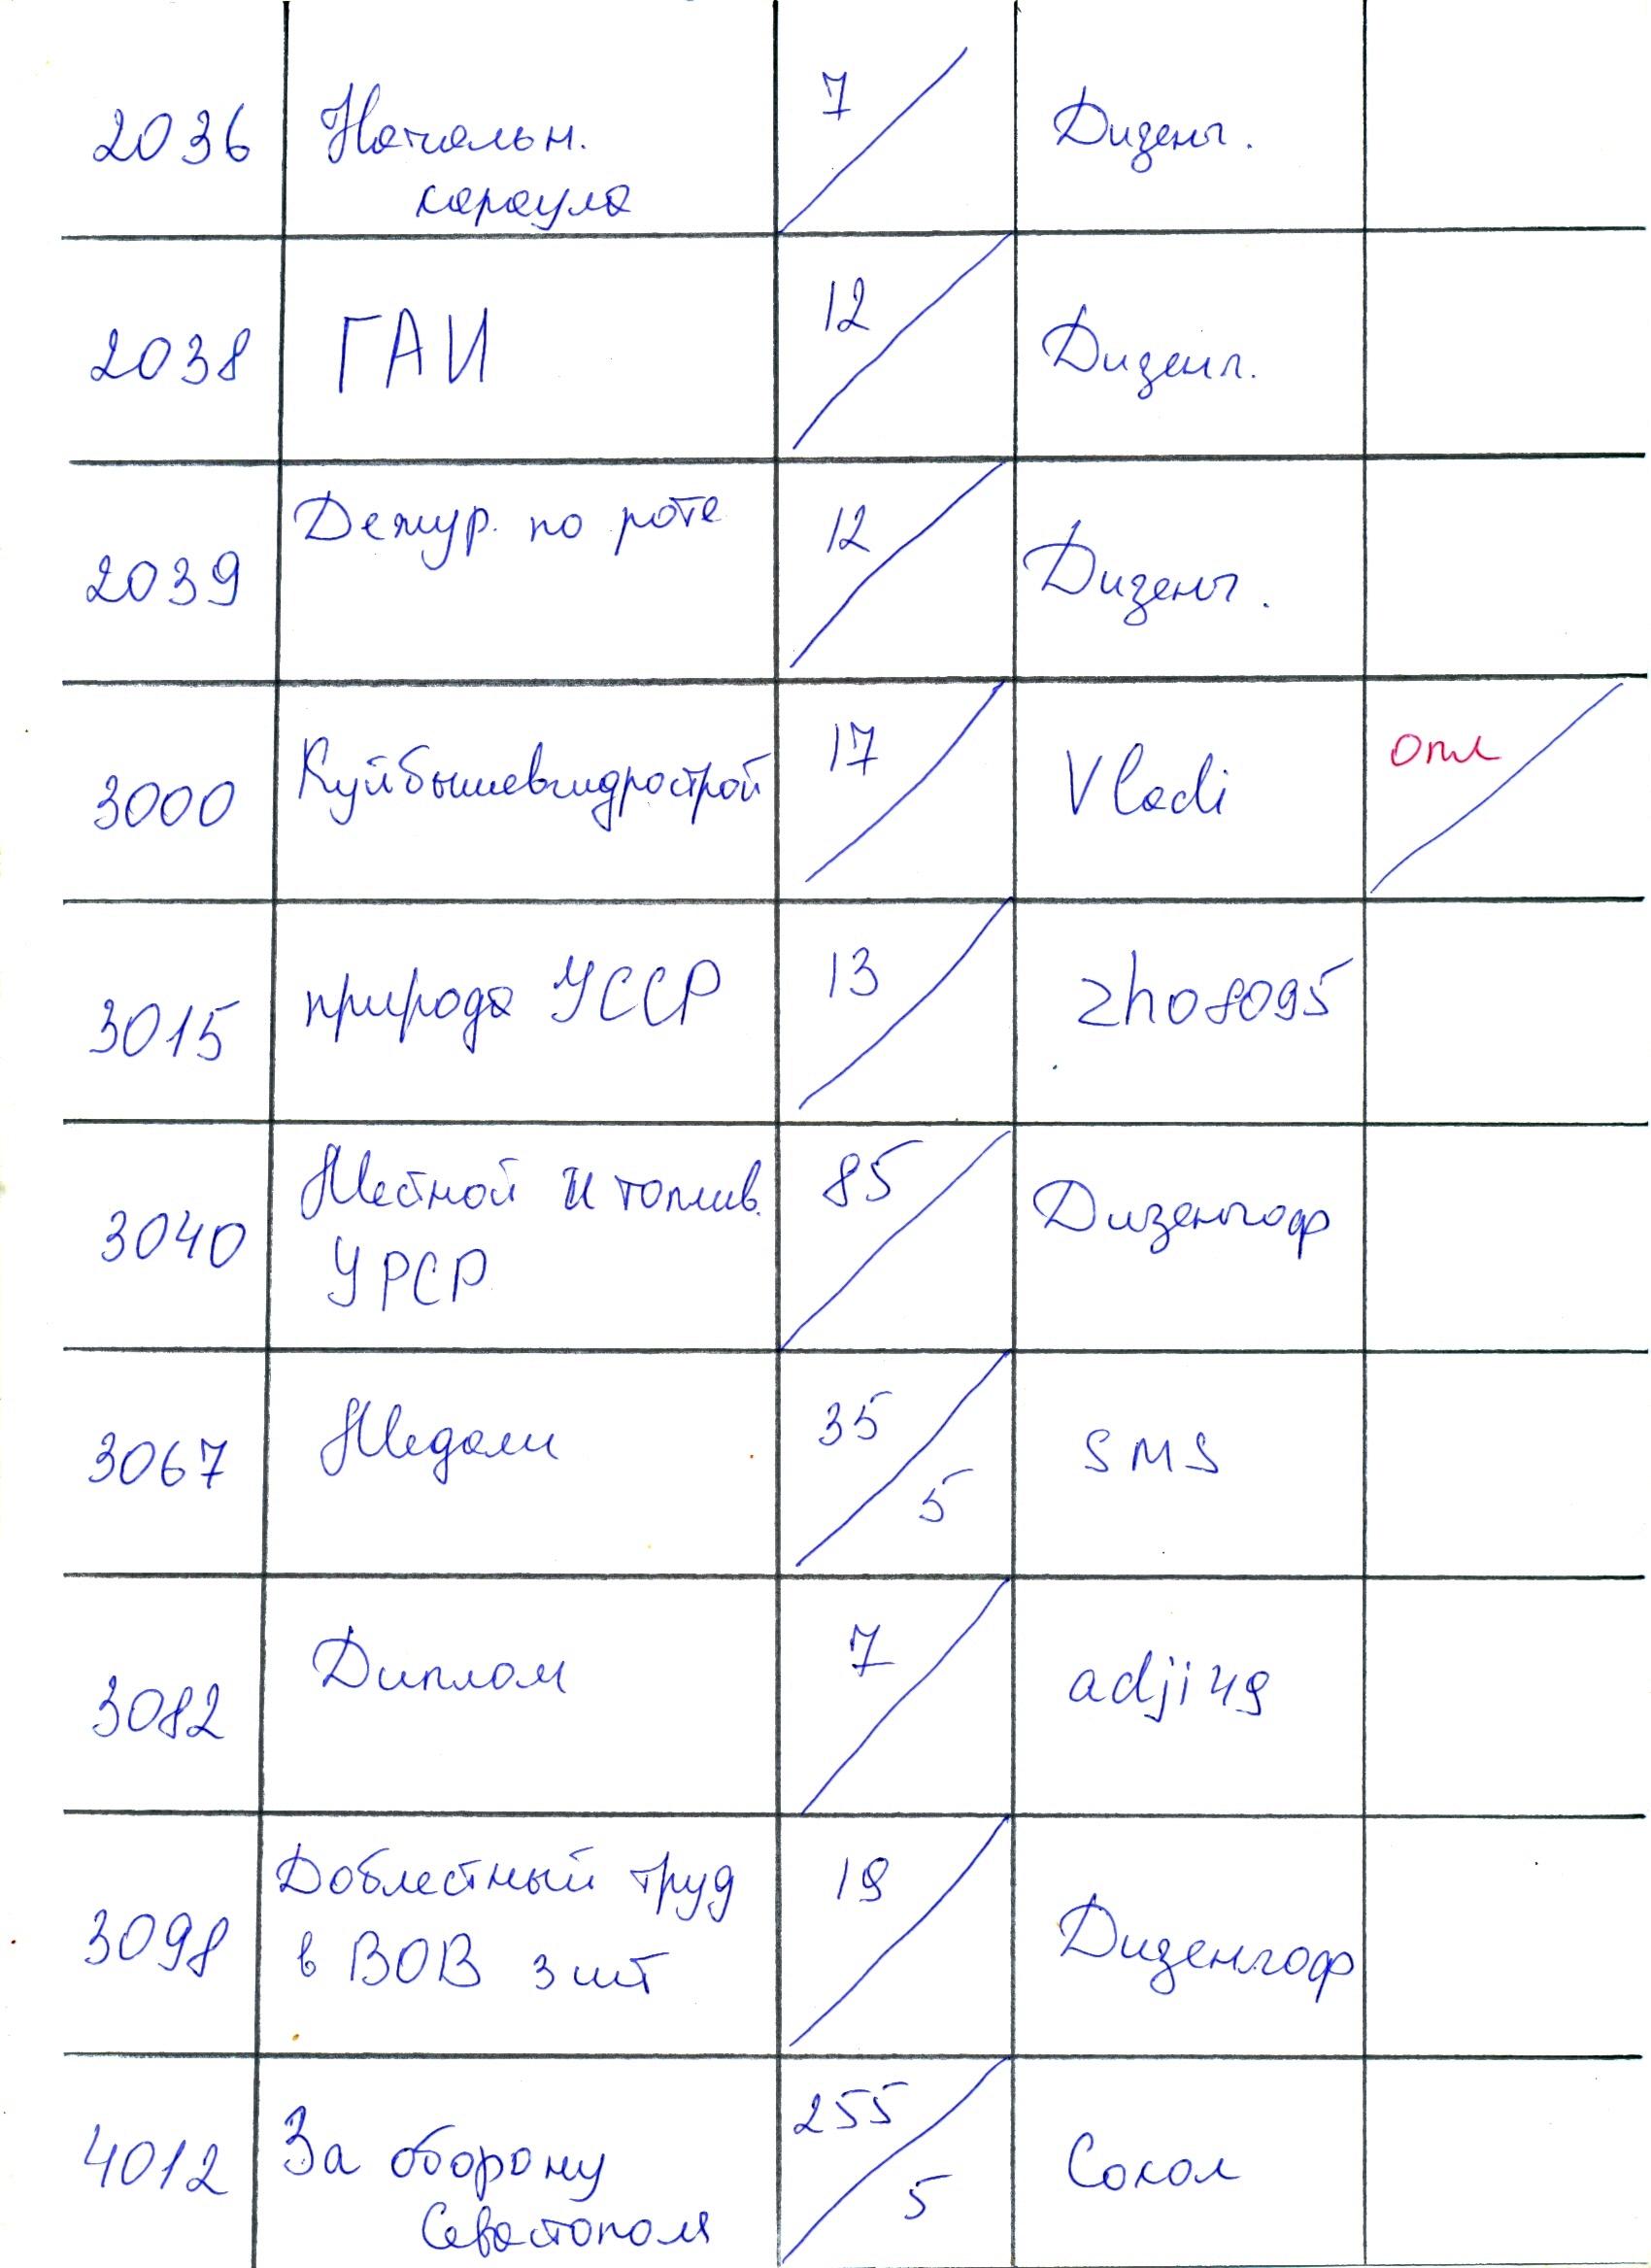 2036 Начальн. 7 Дизенг.
караула
2038 ГАИ 12 Дизенг.
2039 Дежур. по роте 12 Дизенг.
3000 Куйбышевгидрострой 17 Vladi опл
3015 природа УССР 13 zho8095
3040 Местной и топлив. 85 Дизенгоф
УРСР
3067 Медали 35 5 SMS
3082 Диплом 7 adji49
3098 Доблестный труд 19 Дизенгоф
в ВОВ 3 шт
4012 За оборону 255 5 Сокол
Севастополя